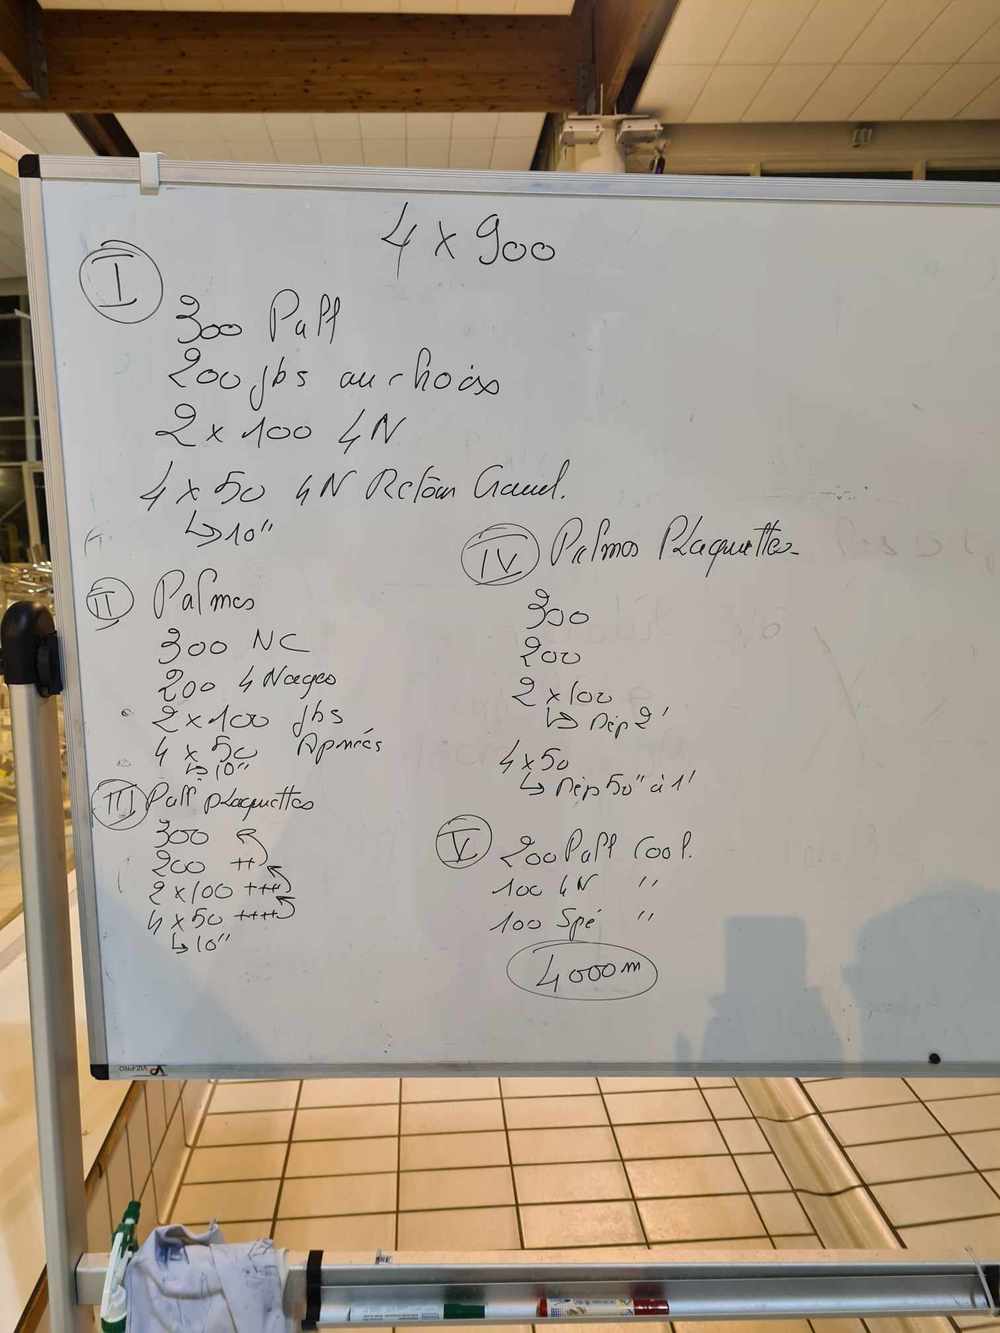 4 x 900
I
300 Pull
200 jbs au choix
2 x 100 4N
4 x 50 4N Retour Crawl.
↳ 10"
II Palmes
300 NC
200 4 Nages
2 x 100 jbs
4 x 50 Apnées
↳ 10"
III Pull plaquettes
300
200 ++
2 x 100 +++
4 x 50 ++++
↳ 10"
IV Palmes Plaquettes
300
200
2 x 100
↳ Dép 2'
4 x 50
↳ Dép 50" à 1'
V 200 Pull Cool.
100 4N "
100 Spé "
4000m
VIZ-PRO